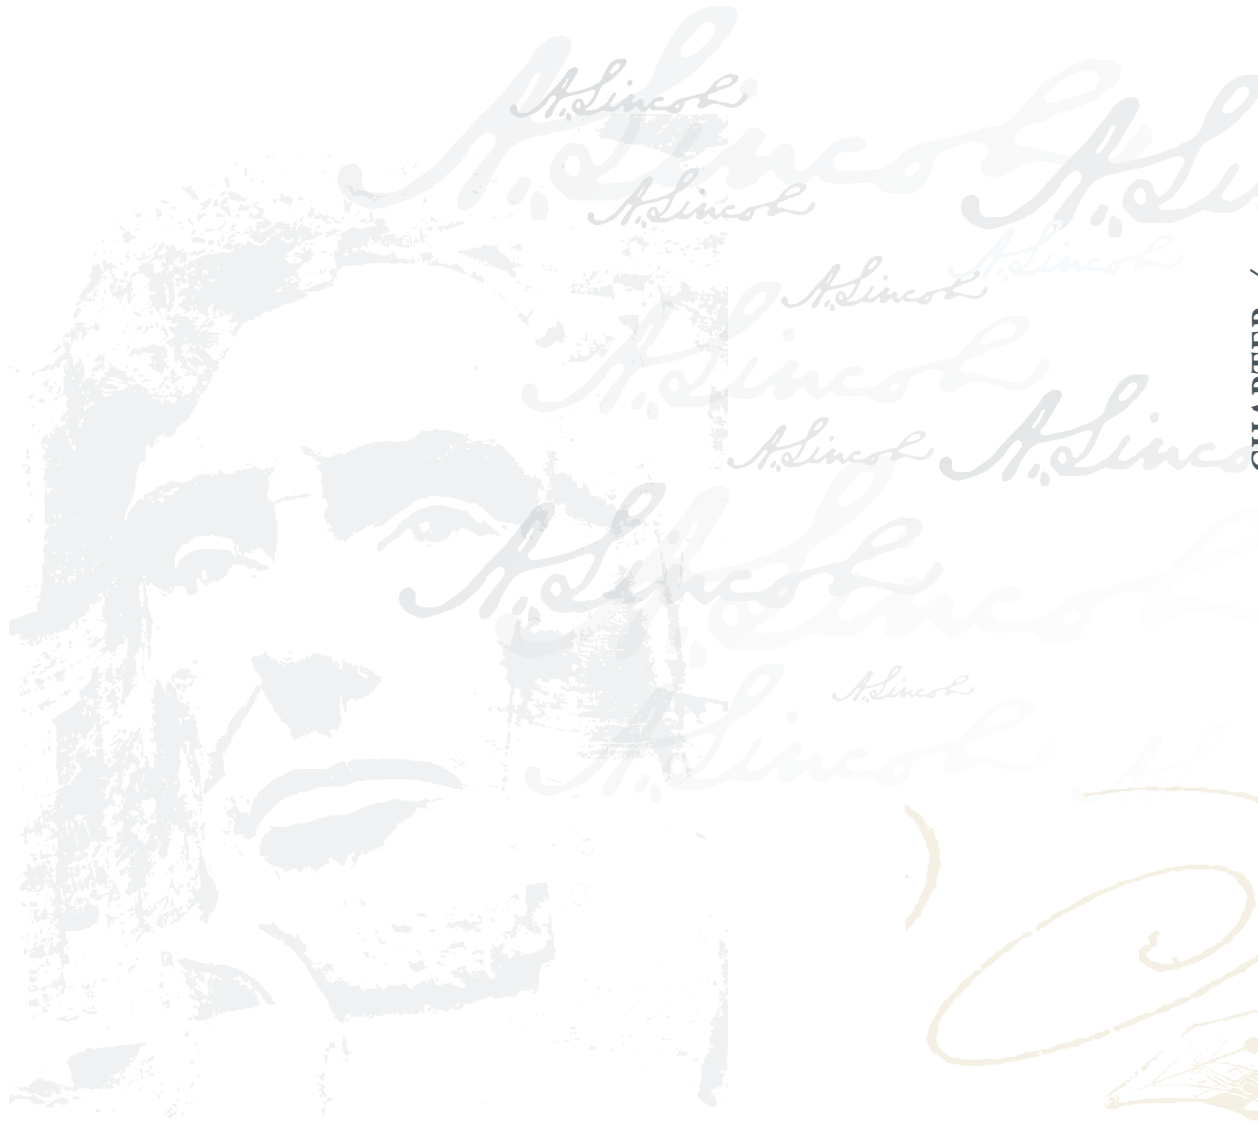 A. Lincoln
A. Lincoln
A. Li
A. Lincoln
A. Lincoln
A. Lincoln
A. Lincoln
A. Linco
A. Lincoln
A. Lincoln
A. Lincoln
A. Lincoln
A. Lincoln
CHAPTER